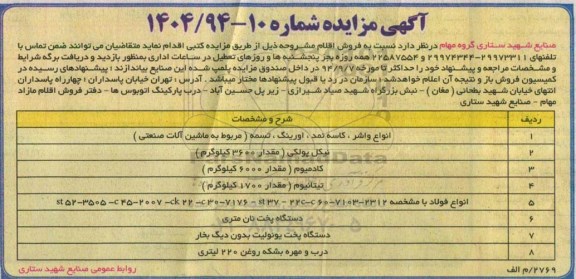 آگهی مزایده شماره ۱۰-۱۴۰۴/۹۴
صنایع شهید ستاری گروه مهام درنظر دارد نسبت به فروش اقلام مشروحه ذیل از طریق مزایده کتبی اقدام نماید متقاضیان می توانند ضمن تماس با
تلفنهای ۲۹۹۷۳۳۱۱-۲۹۹۷۴۳۴۴ و ۲۲۵۸۷۵۵۴ همه روزه بجز پنجشنبه ها و روزهای تعطیل در ساعات اداری بمنظور بازدید و دریافت برگه شرایط
و مشخصات مراجعه و پیشنهاد خود را حداکثر تا مورخه ۹۴/۹/۷ در داخل صندوق مزایده پلمب شده این صنایع بیاندازند ؛ پیشنهادهای رسیده در
کمیسیون فروش باز و نتیجه آن اعلام خواهدشد ؛ سازمان در رد یا قبول پیشنهادها مختار میباشد . آدرس : تهران خیابان پاسداران ؛ چهارراه پاسداران
انتهای خیابان شهید بطحانی ( مغان ) - نبش بزرگراه شهید صیاد شیرازی - زیر پل حسین آباد - درب پارکینگ اتوبوس ها - دفتر فروش اقلام مازاد
مهام - صنایع شهید ستاری
ردیف شرح و مشخصات
۱ انواع واشر ، کاسه نمد ، اورینگ ، تسمه ( مربوط به ماشین آلات صنعتی )
۲ نیکل پولکی ( مقدار ۳۶۰۰ کیلوگرم )
۳ کادمیوم ( مقدار ۶۰۰۰ کیلوگرم )
۴ تیتانیوم ( مقدار ۱۷۰۰ کیلوگرم )
۵ انواع فولاد با مشخصه st ۵۲-۳۵۰۵ -c ۴۵-۲۰۰۷ -ck ۲۲ -c ۳۰-۷۱۷۶ - st ۳۷ - ۲۲c-c ۶۰-۷۱۰۳-۲۳۱۲
۶ دستگاه پخت نان متری
۷ دستگاه پخت یونولیت بدون دیگ بخار
۸ درب و مهره بشکه روغن ۲۲۰ لیتری
۲۷۶۹/م الف
روابط عمومی صنایع شهید ستاری